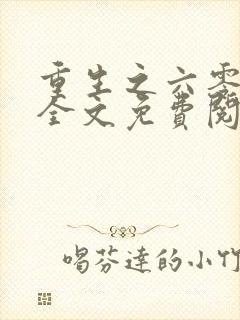 重生之六零
全文免費閱
喝芬達的小竹